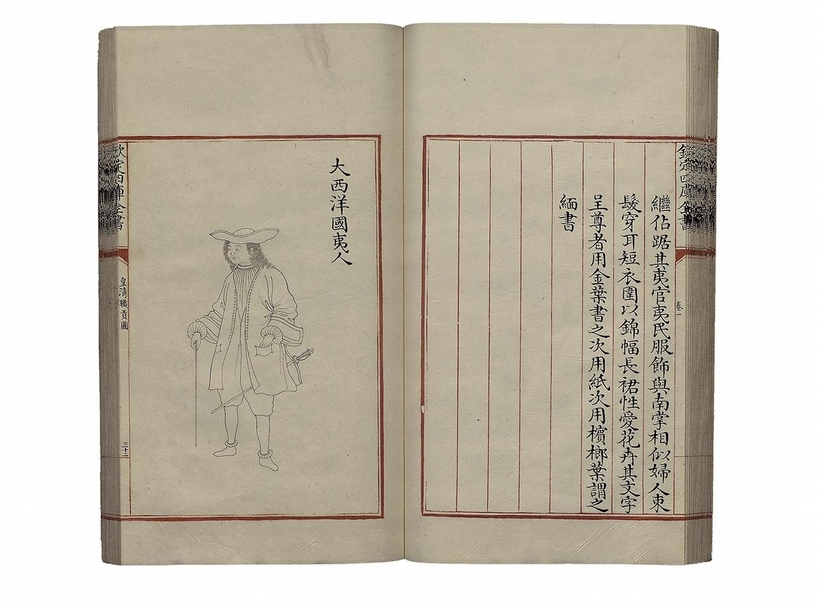 欽定四庫全書
卷一
繼佔踞其夷官夷民服飾與南掌相似婦人束
髮穿耳短衣圍以錦幅長裙性愛花卉其文字
呈尊者用金葉書之次用紙次用檳榔葉謂之
緬書
大西洋國夷人
欽定四庫全書
皇清職貢圖
三十二